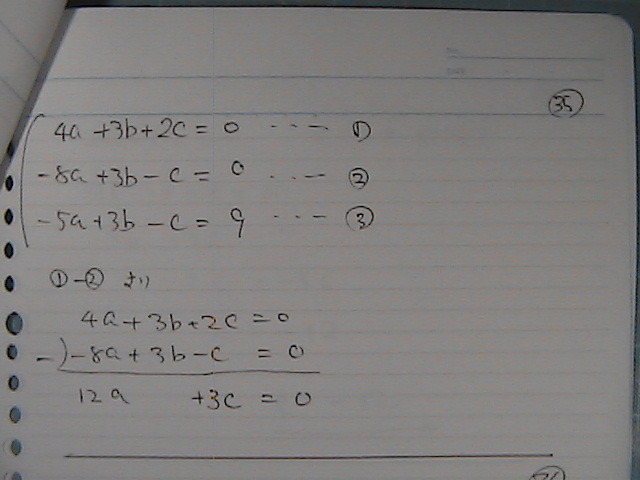 ㉟
4a+3b+2c=0 ----- ①
-8a+3b-c=0 ----- ②
-5a+3b-c=9 ----- ③
①-② より
4a+3b+2c=0
-)-8a+3b-c=0
12a +3c=0